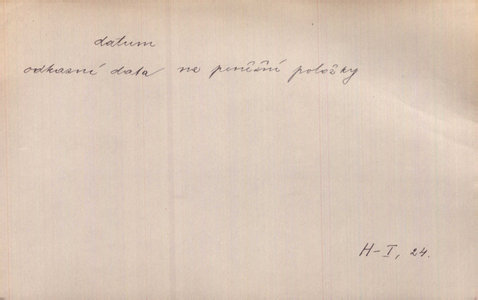 datum
odkazní data na peněžní položky
H-I, 24.